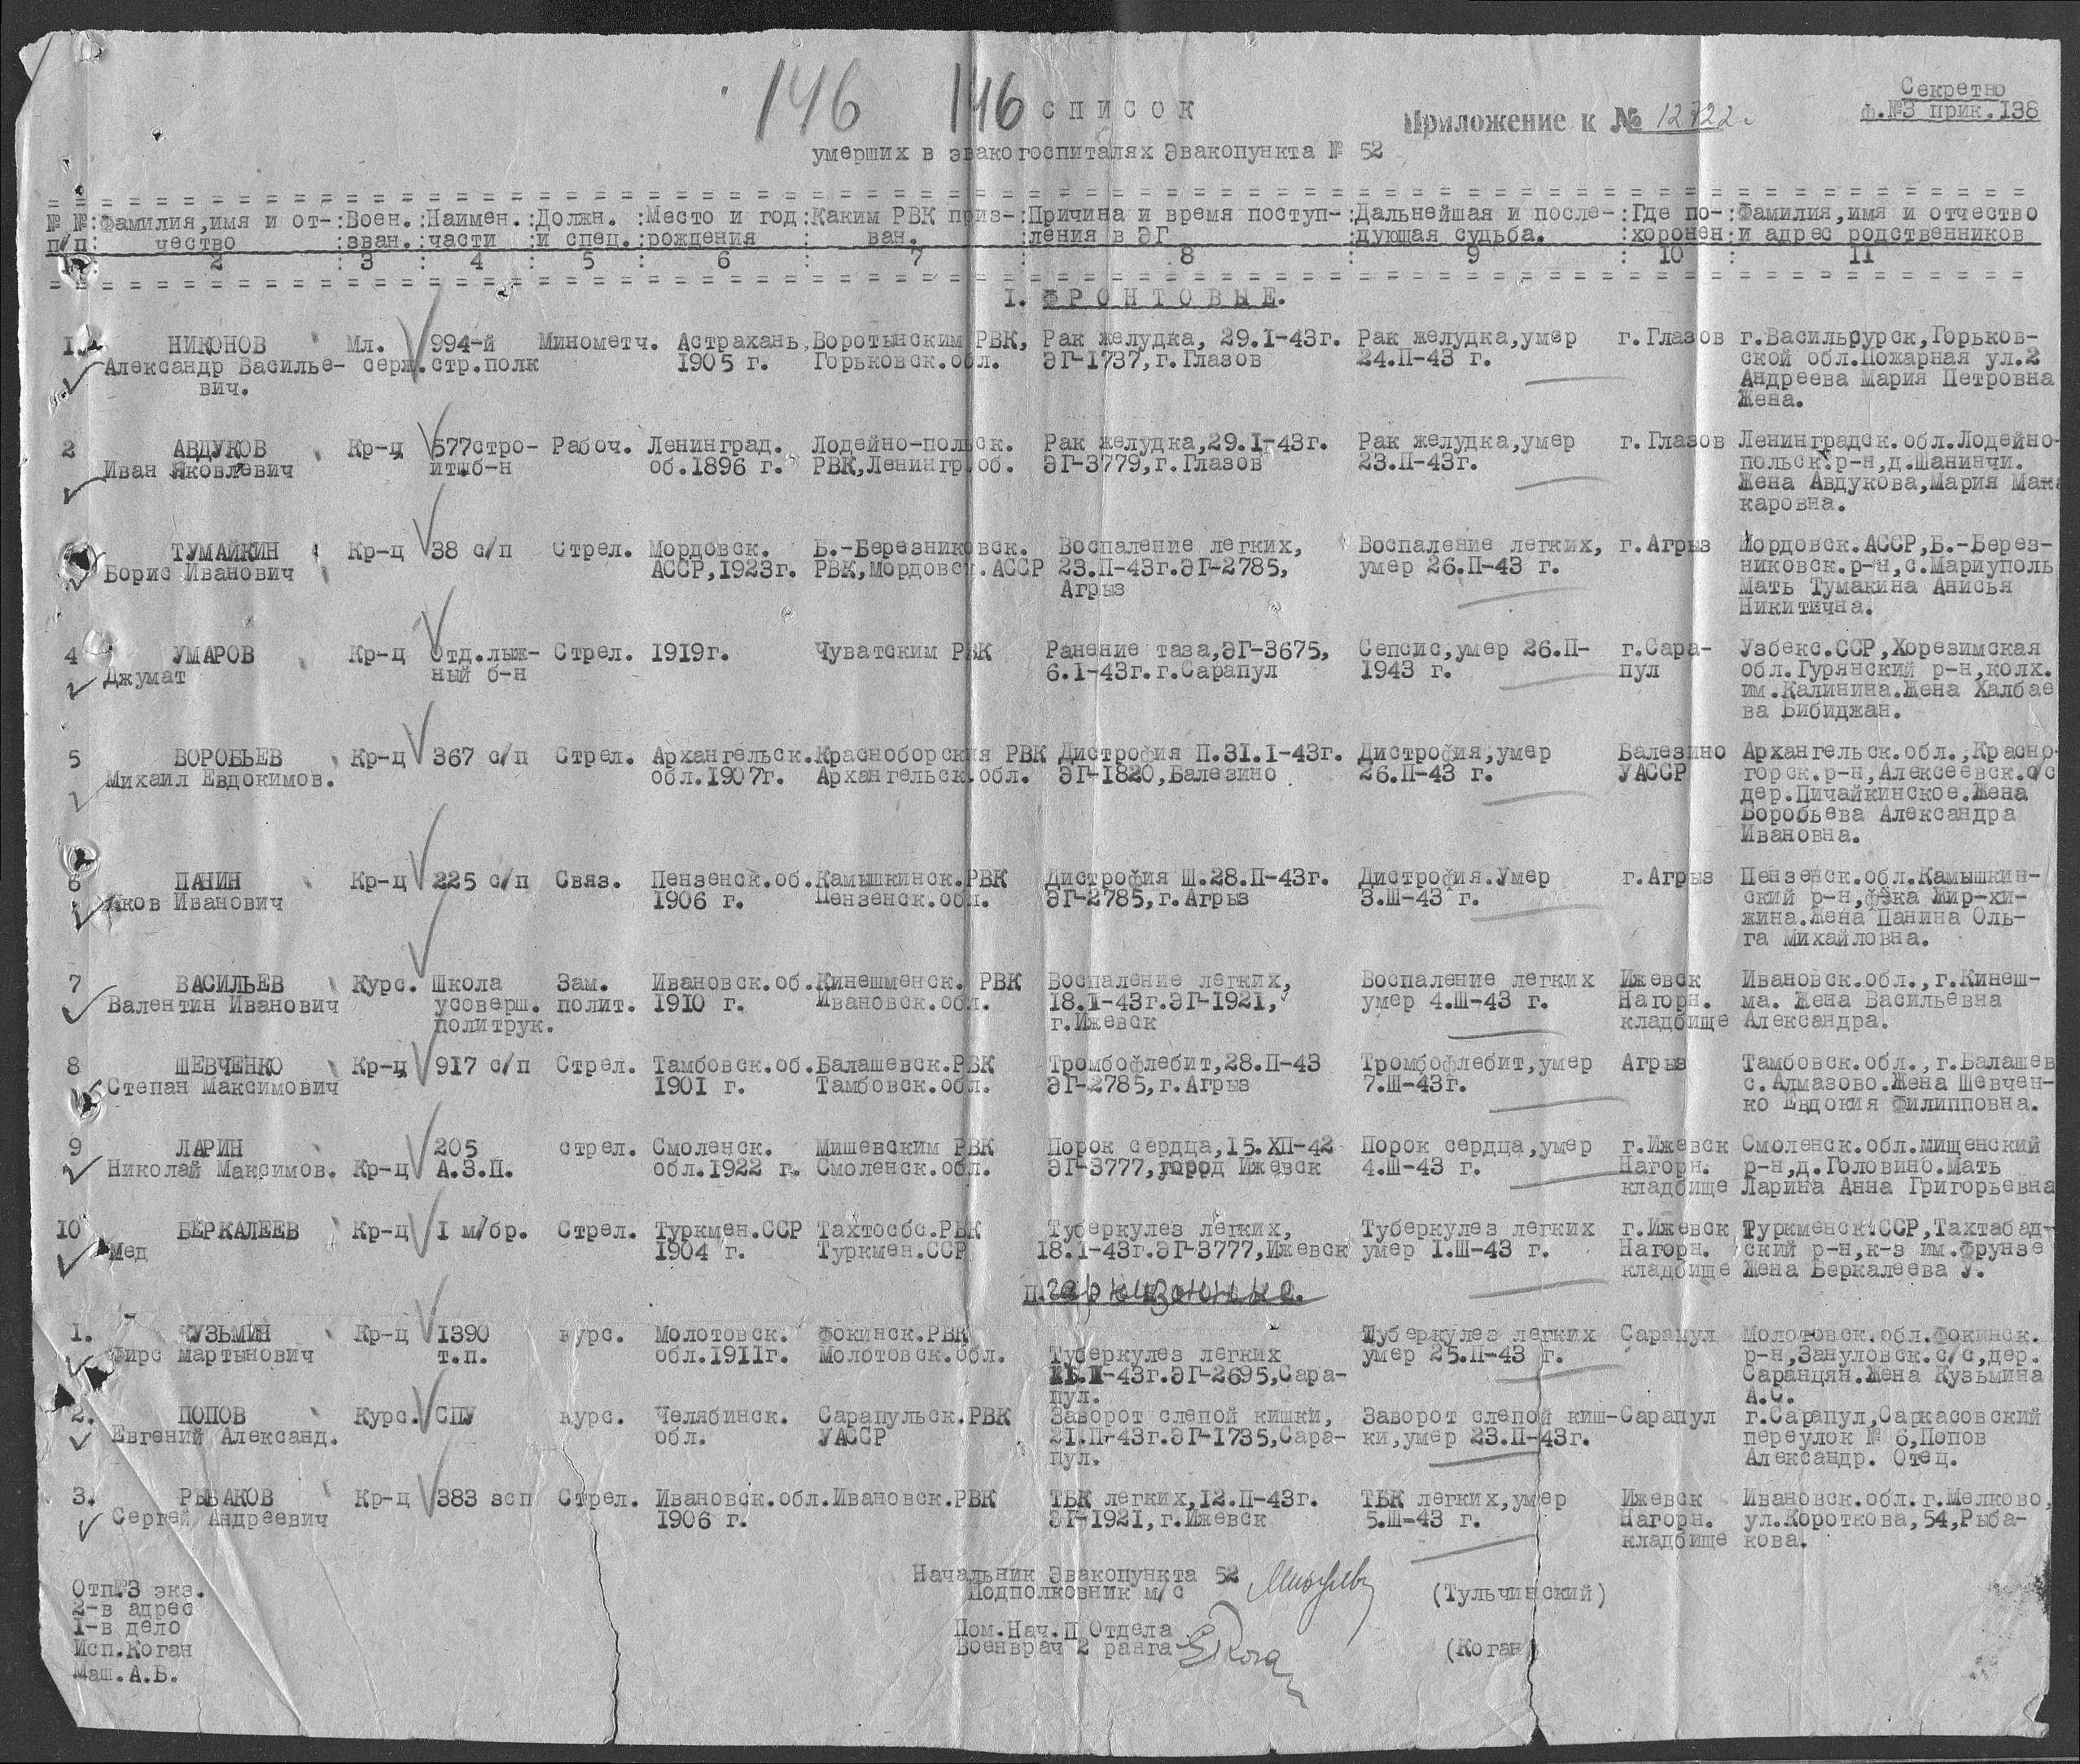 146 146 СПИСОК
Секретно
ф.№3 прик.138
Приложение к № 12722
умерших в эвакогоспиталях Эвакопункта № 52
№ №:Фамилия,имя и от-:Воен.:Наимен.:Должн. :Место и год:Каким РВК приз-:Причина и время поступ-:Дальнейшая и после-:Где по-:Фамилия,имя и отчество
п/п: чество :зван.:части :и спец.:рождения : ван. :ления в ЭГ :дующая судьба. :хоронен:и адрес родственников
1 : 2 : 3 : 4 : 5 : 6 : 7 : 8 : 9 : 10 : 11
I. ФРОНТОВЫЕ.
1. НИКОНОВ Мл. 994-й Минометч. Астрахань, Воротынским РВК, Рак желудка, 29.I-43г. Рак желудка,умер г.Глазов г.Васильсурск,Горьков-
Александр Василье- серж. стр.полк 1905 г. Горьковск.обл. ЭГ-1737,г.Глазов 24.П-43 г. ской обл.Пожарная ул.2
вич. Андреева Мария Петровна
Жена.
2 АВДУКОВ Кр-ц 577стро- Рабоч. Ленинград. Лодейно-польск. Рак желудка,29.I-43г. Рак желудка,умер г.Глазов Ленинградск.обл.Лодейно-
Иван Яковлевич итшб-н об.1896 г. РВК,Ленингр.об. ЭГ-3779,г.Глазов 23.П-43г. польск.р-н,д.Шанинчи.
Жена Авдукова,Мария Мака
каровна.
ТУМАЙКИН Кр-ц 38 с/п Стрел. Мордовск. Б.-Березниковск. Воспаление легких, Воспаление легких, г.Агрыз Мордовск.АССР,Б.-Берез-
Борис Иванович АССР,1923г. РВК,Мордовск.АССР 23.П-43г.ЭГ-2785, умер 26.П-43 г. никовск.р-н,с.Мариуполь
Агрыз Мать Тумакина Анисья
Никитична.
4 УМАРОВ Кр-ц Отд.лыж- Стрел. 1919г. Чуватским РВК Ранение таза,ЭГ-3675, Сепсис,умер 26.П- г.Сара- Узбекс.ССР,Хорезимская
Джумат ный б-н 6.I-43г.г.Сарапул 1943 г. пул обл.Гурянский р-н,колх.
им.Калинина.Жена Халбае
ва Бибиджан.
5 ВОРОБЬЕВ Кр-ц 367 с/п Стрел. Архангельск. Красноборския РВК Дистрофия П.31.I-43г. Дистрофия,умер Балезино Архангельск.обл.,Красно-
Михаил Евдокимов. обл.1907г. Архангельск.обл. ЭГ-1820,Балезино 26.П-43 г. УАССР горск.р-н,Алексеевск.с/с
дер.Пичайкинское.Жена
Воробьева Александра
Ивановна.
6 ПАНИН Кр-ц 225 с/п Связ. Пензенск.об. Камышкинск.РВК Дистрофия Ш.28.П-43г. Дистрофия.Умер г.Агрыз Пензенск.обл.Камышкин-
Яков Иванович 1906 г. Пензенск.обл. ЭГ-2785,г.Агрыз 3.Ш-43 г. ский р-н, Жир-хи-
жина.Жена Панина Оль-
га Михайловна.
7 ВАСИЛЬЕВ Курс. Школа Зам. Ивановск.об. Кинешменск. РВК Воспаление легких, Воспаление легких Ижевск Ивановск.обл.,г.Кинеш-
Валентин Иванович усоверш. полит. 1910 г. Ивановск.обл. 18.I-43г.ЭГ-1921, умер 4.Ш-43 г. Нагорн. ма. Жена Васильевна
политрук. г.Ижевск кладбище Александра.
8 ШЕВЧЕНКО Кр-ц 917 с/п Стрел. Тамбовск.об. Балашевск.РВК Тромбофлебит,28.П-43 Тромбофлебит,умер Агрыз Тамбовск.обл.,г.Балашев
Степан Максимович 1901 г. Тамбовск.обл. ЭГ-2785,г.Агрыз 7.Ш-43г. с.Алмазово.Жена Шевчен-
ко Евдокия Филипповна.
9 ЛАРИН 205 стрел. Смоленск. Мишевским РВК Порок сердца,15.ХП-42 Порок сердца,умер г.Ижевск Смоленск.обл.мищенский
Николай Максимов. Кр-ц А.З.П. обл.1922 г. Смоленск.обл. ЭГ-3777,город Ижевск 4.Ш-43 г. Нагорн. р-н,д.Головино.Мать
кладбище Ларина Анна Григорьевна
10 БЕРКАЛЕЕВ Кр-ц I м/бр. Стрел. Туркмен.ССР Тахтосбс.РВК Туберкулез легких, Туберкулез легких г.Ижевск Туркменск.ССР,Тахтабад-
Мед 1904 г. Туркмен.ССР 18.I-43г.ЭГ-3777,Ижевск умер I.Ш-43 г. Нагорн. ский р-н,к-з им.Фрунзе
кладбище Жена Беркалеева У.
П. гарнизонные.
1. КУЗЬМИН Кр-ц 1390 курс. Молотовск. Фокинск.РВК Туберкулез легких Сарапул Молотовск.обл.Фокинск.
Фирс Мартынович т.п. обл.1911г. Молотовск.обл. Туберкулез легких умер 25.П-43 г. р-н,Зануловск.с/с,дер.
-43г.ЭГ-2695,Сара- Саранцян.Жена Кузьмина
пул. А.С.
2. ПОПОВ Курс. СПУ курс. Челябинск. Сарапульск.РВК Заворот слепой кишки, Заворот слепой киш- Сарапул г.Сарапул,Саркасовский
Евгений Александ. обл. УАССР 21.П-43г.ЭГ-1735,Сара- ки,умер 23.П-43г. переулок № 6,Попов
пул. Александр. Отец.
3. РЫБАКОВ Кр-ц 383 зсп Стрел. Ивановск.обл. Ивановск.РВК ТБК легких,12.П-43г. ТБК легких,умер Ижевск Ивановск.обл.г.Мелково,
Сергей Андреевич 1906 г. ЭГ-1921,г.Ижевск 5.Ш-43 г. Нагорн. ул.Короткова,54,Рыба-
кладбище кова.
Начальник Эвакопункта 52
Подполковник м/с (Тульчинский)
Пом.Нач.П Отдела
Военврач 2 ранга Коган (Коган)
Отп№3 экз.
2-в адрес
1-в дело
Исп.Коган
Маш.А.Б.